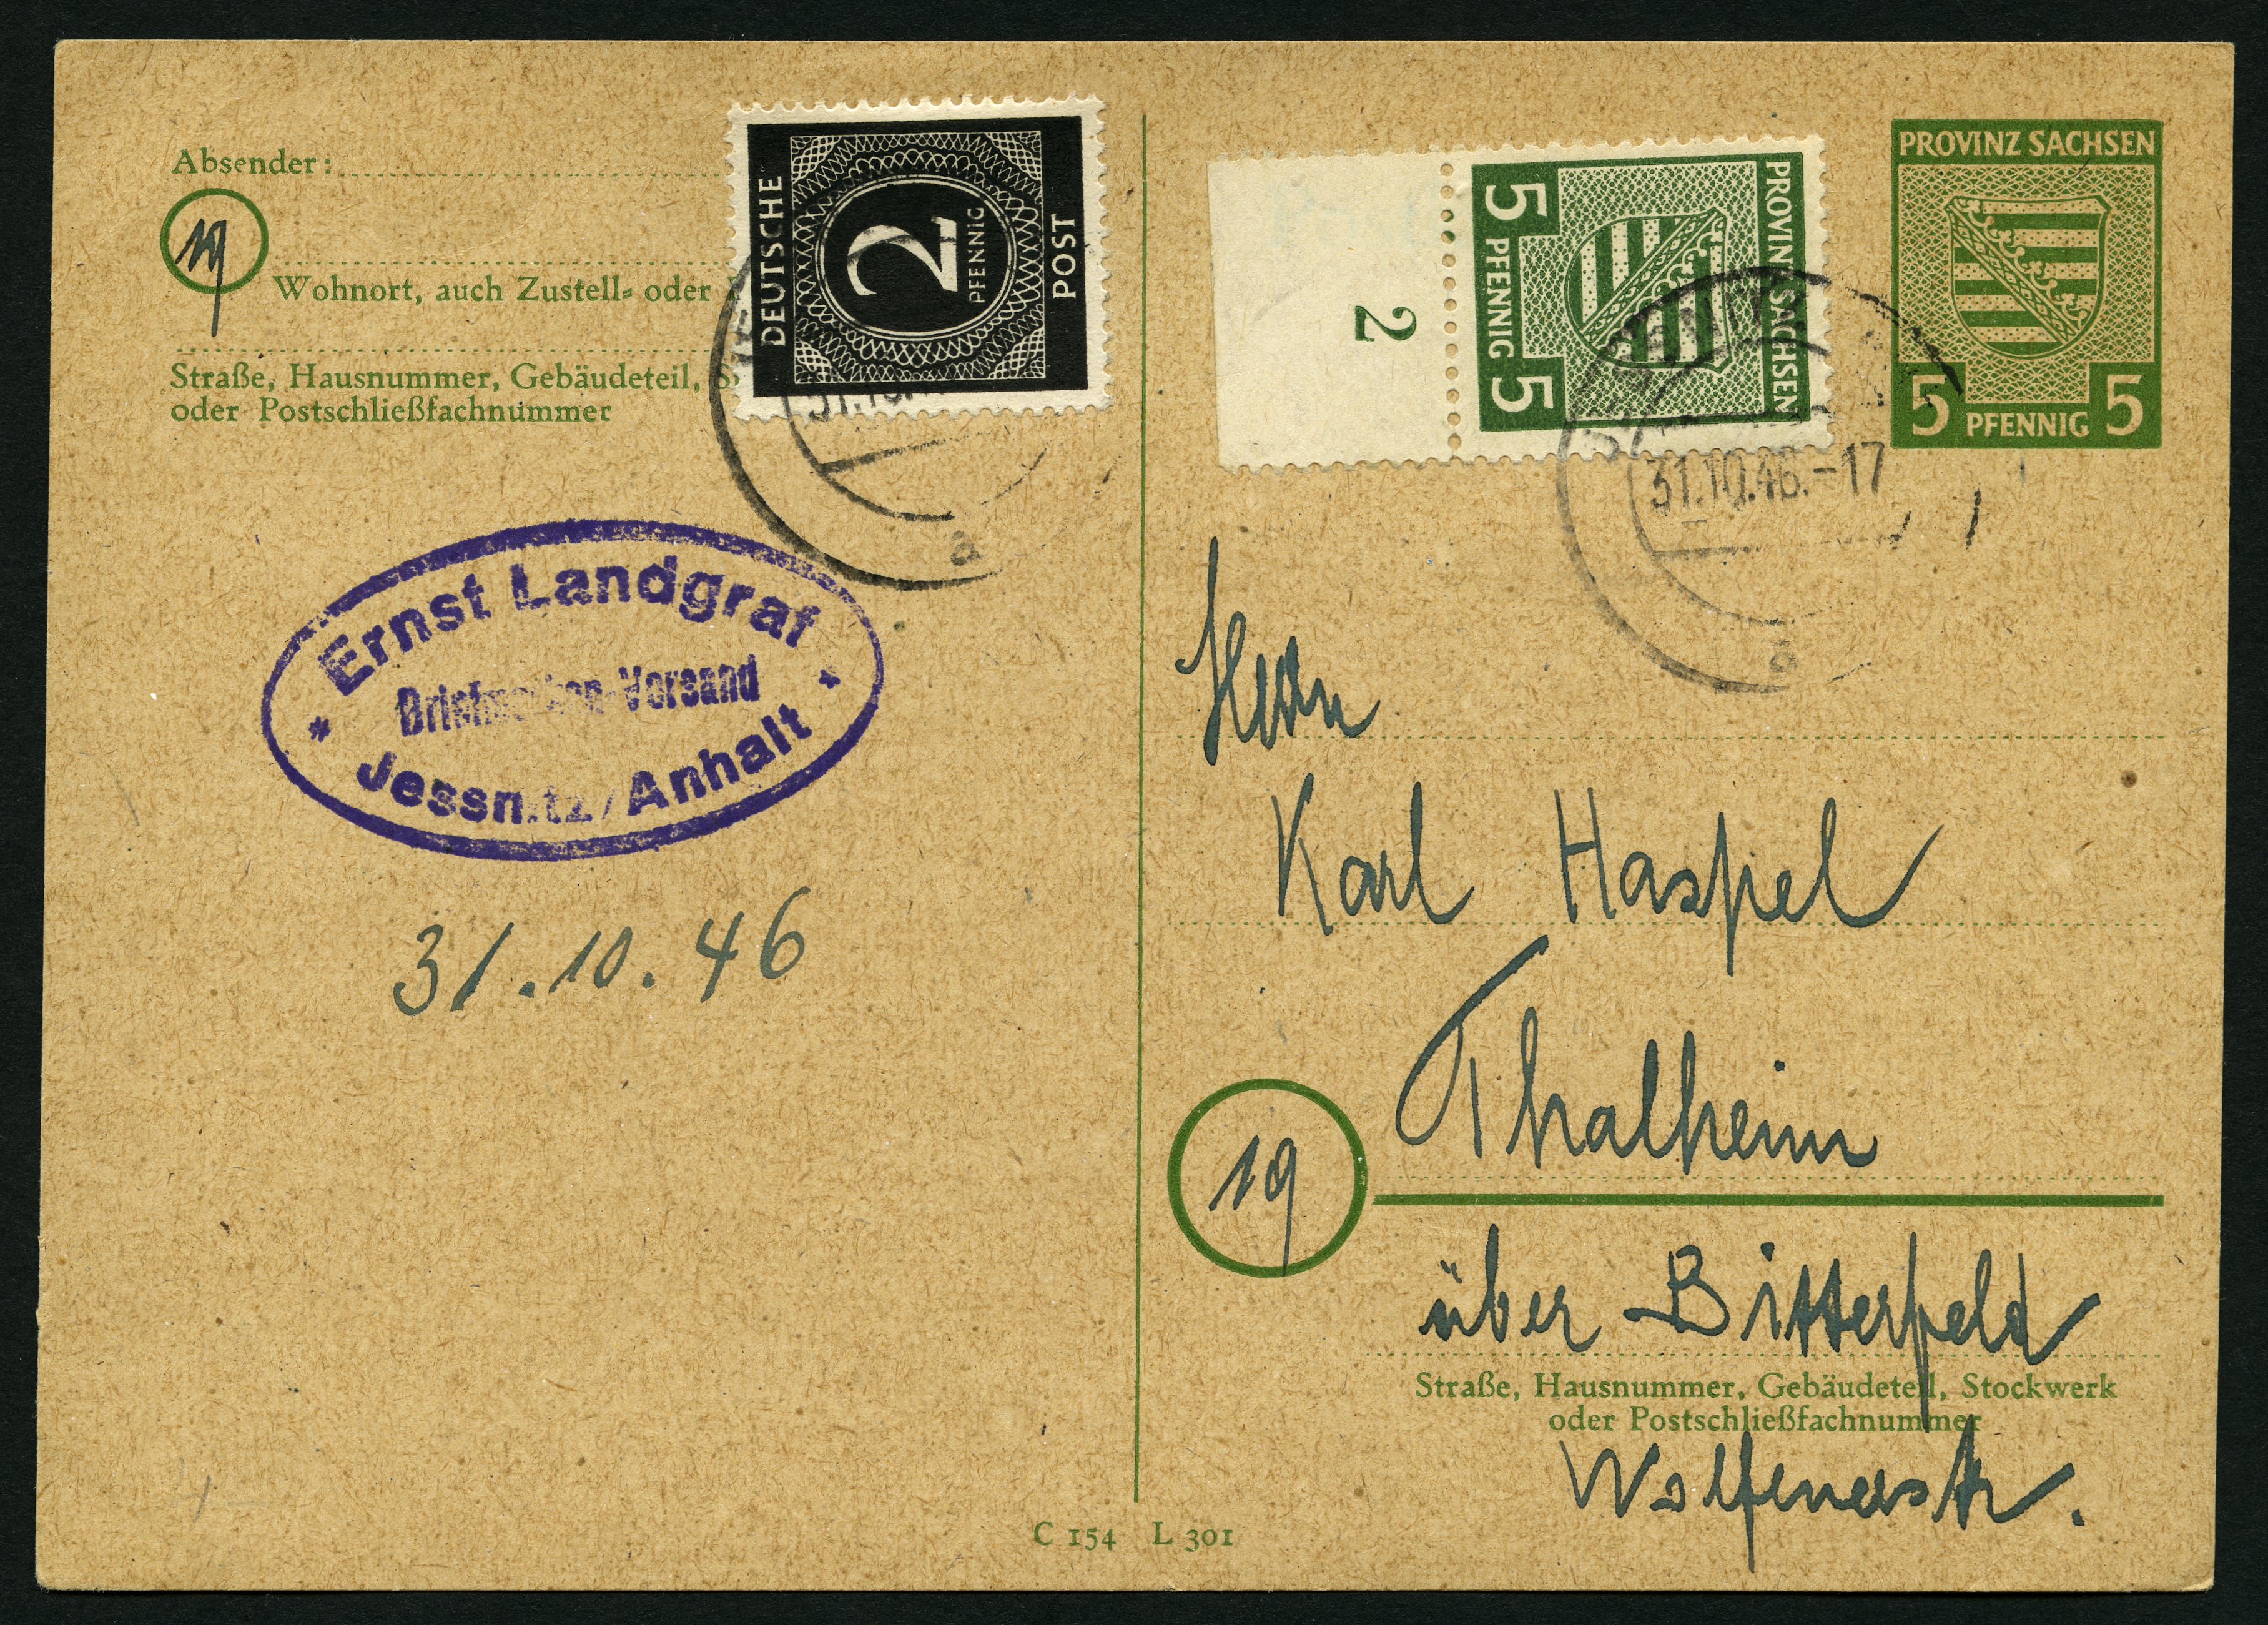 Absender:
19
Wohnort, auch Zustell- oder
Straße, Hausnummer, Gebäudeteil,
oder Postschließfachnummer
DEUTSCHE
2
PFENNIG
POST
31.10.
a
Ernst Landgraf
Briefmarken-Versand
* Jessnitz/Anhalt *
31.10.46
2
PROVINZ SACHSEN
5 PFENNIG 5
PROVINZ SACHSEN
5 PFENNIG 5
31.10.46.-17
a
Herrn
Karl Haspel
Thalheim
19
über Bitterfeld
Straße, Hausnummer, Gebäudeteil, Stockwerk
oder Postschließfachnummer
Wolfenerstr.
C 154 L 301